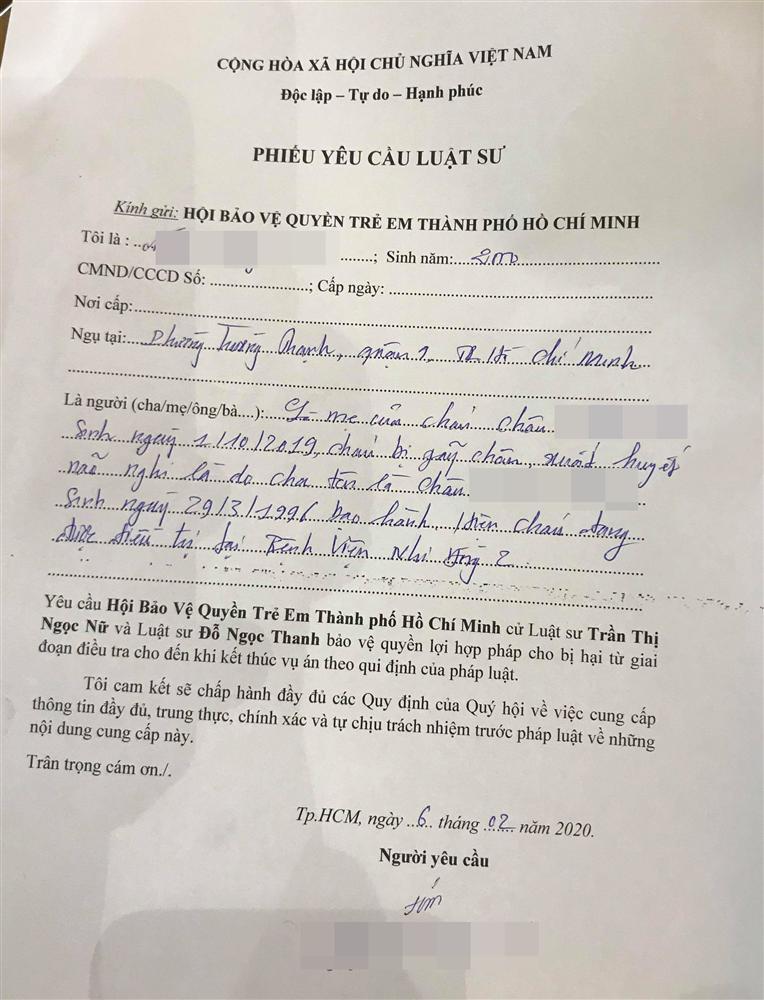 CỘNG HÒA XÃ HỘI CHỦ NGHĨA VIỆT NAM
Độc lập – Tự do – Hạnh phúc
PHIẾU YÊU CẦU LUẬT SƯ
Kính gửi: HỘI BẢO VỆ QUYỀN TRẺ EM THÀNH PHỐ HỒ CHÍ MINH
Tôi là : ........; Sinh năm:
CMND/CCCD Số: ........................; Cấp ngày: ........................
Nơi cấp:........................
Ngụ tại: Phường Trường Thạnh, quận 9, TP. Hồ Chí Minh
Là người (cha/mẹ/ông/bà....): Là mẹ của cháu Chấn
Sinh ngày 1/10/2019, cháu bị gãy chân, xuất huyết
não nghi là do cha tên là Chấn
Sinh ngày 29/3/1996 bạo hành, hiện cháu đang
được điều trị tại Bệnh Viện Nhi Đồng 2
Yêu cầu Hội Bảo Vệ Quyền Trẻ Em Thành phố Hồ Chí Minh cử Luật sư Trần Thị
Ngọc Nữ và Luật sư Đỗ Ngọc Thanh bảo vệ quyền lợi hợp pháp cho bị hại từ giai
đoạn điều tra cho đến khi kết thúc vụ án theo qui định của pháp luật.
Tôi cam kết sẽ chấp hành đầy đủ các Quy định của Quý hội về việc cung cấp
thông tin đầy đủ, trung thực, chính xác và tự chịu trách nhiệm trước pháp luật về những
nội dung cung cấp này.
Trân trọng cám ơn./.
Tp.HCM, ngày ..6.. tháng ..02.. năm 2020.
Người yêu cầu